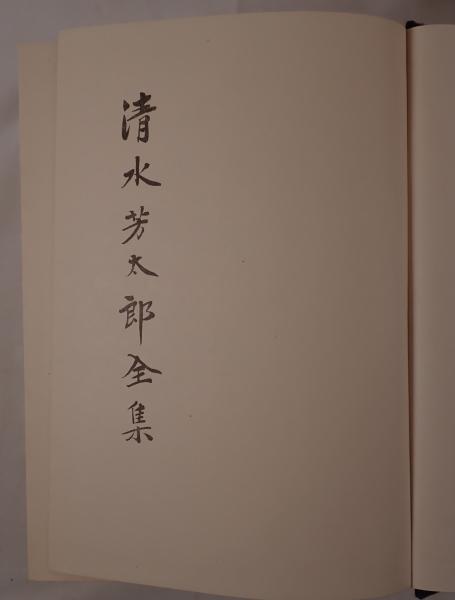 清水芳太郎全集